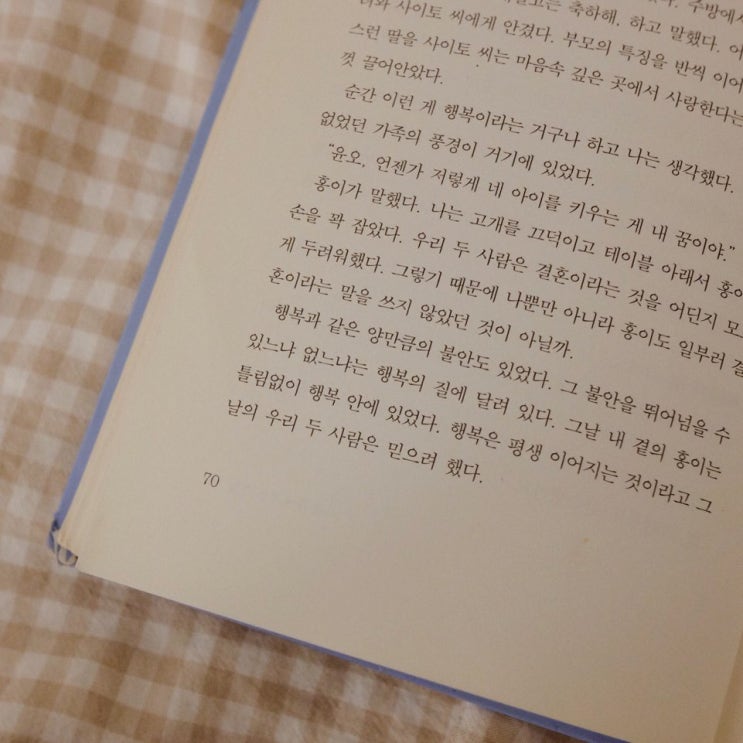 축하해, 하고 말했다. 어
사이토 씨에게 안겼다. 부모의 특징을 반씩 이어
스런 딸을 사이토 씨는 마음속 깊은 곳에서 사랑한다는
껏 끌어안았다.
순간 이런 게 행복이라는 거구나 하고 나는 생각했다.
없었던 가족의 풍경이 거기에 있었다.
“윤오, 언젠가 저렇게 네 아이를 키우는 게 내 꿈이야.”
홍이가 말했다. 나는 고개를 끄덕이고 테이블 아래서 홍이
손을 꽉 잡았다. 우리 두 사람은 결혼이라는 것을 어딘지 모
게 두려워했다. 그렇기 때문에 나뿐만 아니라 홍이도 일부러 결
혼이라는 말을 쓰지 않았던 것이 아닐까.
행복과 같은 양만큼의 불안도 있었다. 그 불안을 뛰어넘을 수
있느냐 없느냐는 행복의 질에 달려 있다. 그날 내 곁의 홍이는
틀림없이 행복 안에 있었다. 행복은 평생 이어지는 것이라고 그
날의 우리 두 사람은 믿으려 했다.
70